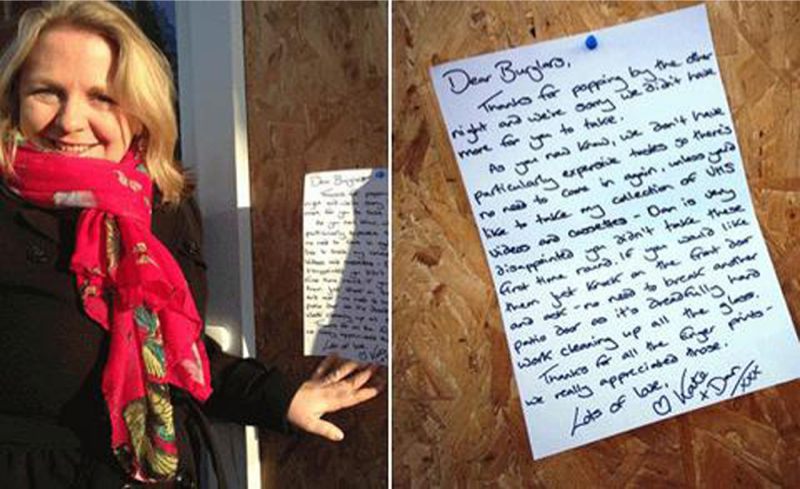 Dear Burglars,
Thanks for popping by the other
night and we're sorry we didn't have
more for you to take.
As you now know, we don't have
particularly expensive tastes so there's
no need to come in again, unless you'd
like to take my collection of VHS
videos and cassettes - Dan is very
disappointed you didn't take these
first time round. If you would like
them just knock on the front door
and ask - no need to break another
patio door as it's dreadfully hard
work cleaning up all the glass.
Thanks for all the finger prints -
we really appreciated those.
Lots of love,
Katie + Dan xxx